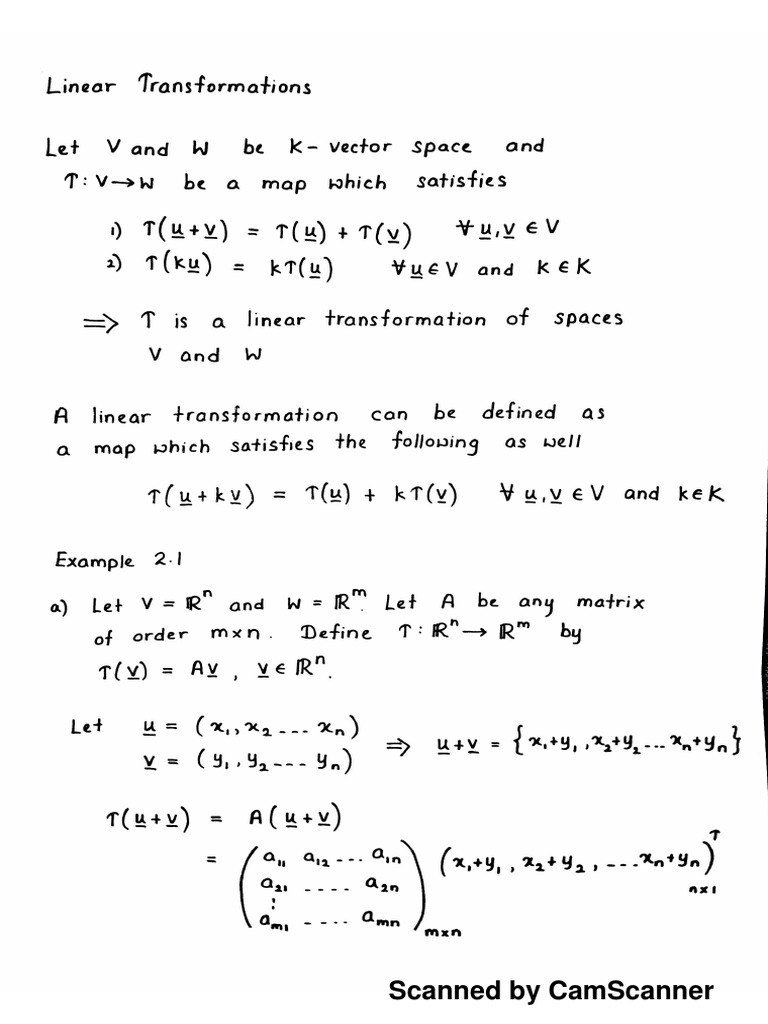 Linear Transformations
Let V and W be K-vector space and
T : V → W be a map which satisfies
1) T(u + v) = T(u) + T(v) ∀ u, v ∈ V
2) T(ku) = kT(u) ∀ u ∈ V and k ∈ K
⟹ T is a linear transformation of spaces
V and W
A linear transformation can be defined as
a map which satisfies the following as well
T(u + kv) = T(u) + kT(v) ∀ u, v ∈ V and k ∈ K
Example 2.1
a) Let V = ℝⁿ and W = ℝᵐ. Let A be any matrix
of order m×n. Define T : ℝⁿ → ℝᵐ by
T(v) = Av , v ∈ ℝⁿ.
Let u = (x₁, x₂ --- xₙ)
v = (y₁, y₂ --- yₙ)
⟹ u + v = {x₁+y₁, x₂+y₂ --- xₙ+yₙ}
T(u + v) = A(u + v)
= (a₁₁ a₁₂ --- a₁ₙ
a₂₁ ---- a₂ₙ
⋮
aₘ₁ ---- aₘₙ)m×n (x₁+y₁, x₂+y₂, --- xₙ+yₙ)ᵀ n×1
Scanned by CamScanner